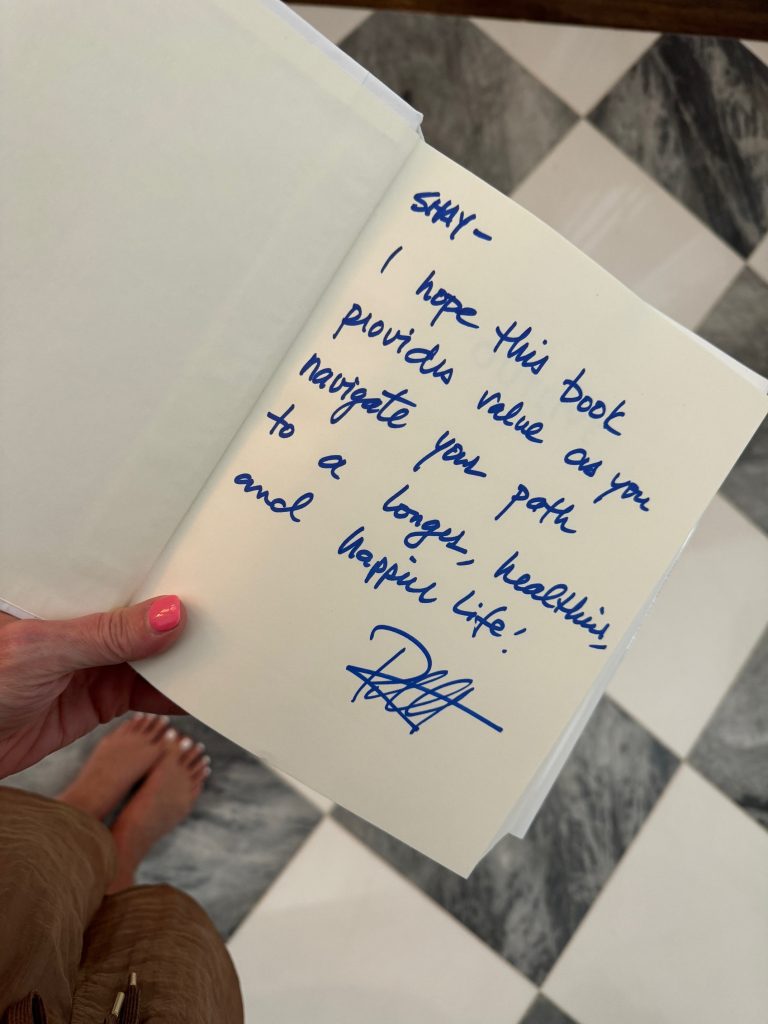 SHAY-
I hope this book
provides value as you
navigate your path
to a longer, healthier,
and happier life!